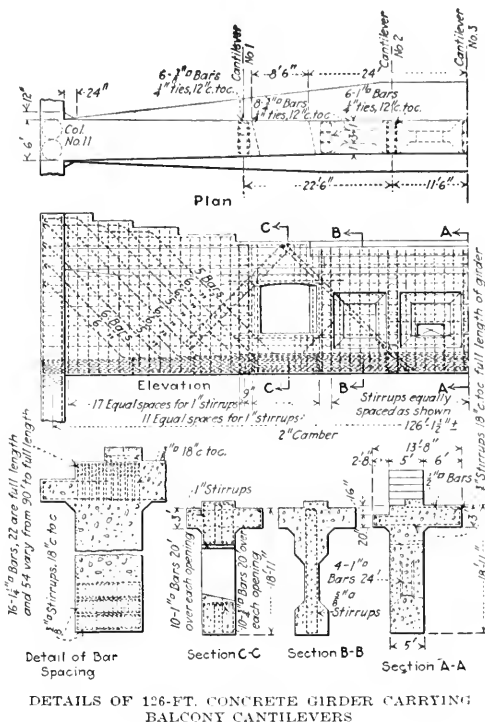 Cantilever
No.1
Cantilever
No.2
Cantilever
No.3
8'6"
24'
24"
12"
6'
Col.
No.11
¼"ties, 12"c.toc.
¼"ties, 12"c.toc.
6-1"□ Bars
¼"ties, 12"c.toc.
22'6"
11'6"
Plan
C
B
A
5 Bars
6 Bars
C
B
A
Elevation
9"
17 Equal spaces for 1" stirrups
11 Equal spaces for 1" stirrups
Stirrups equally
spaced as shown
126'-1½" ±
2" Camber
Stirrups 18"c.toc. full length of girder
76-1¼"□ Bars, 22 are full length
and 54 vary from 90' to full length
18"c.toc.
Stirrups, 18"c.toc.
Detail of Bar
Spacing
1" Stirrups
3'
10-1"□ Bars 20'
over each opening
20' over
each opening
18'-11"
Section C-C
Stirrups
Section B-B
13'-8"
2'-8"
5'
6'
Bars
16"
20"
3'
4-1"□
Bars 24'
18'-11"
5'
Section A-A
DETAILS OF 126-FT. CONCRETE GIRDER CARRYING
BALCONY CANTILEVERS